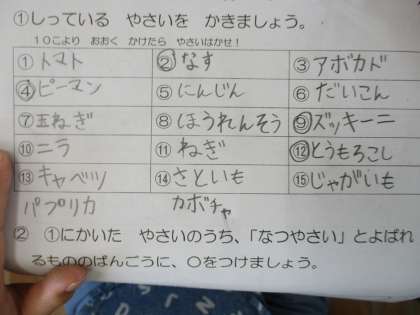 ①しっている やさいを かきましょう。
10こより おおく かけたら やさいはかせ!
①トマト ②なす ③アボカド
④ピーマン ⑤にんじん ⑥だいこん
⑦玉ねぎ ⑧ほうれんそう ⑨ズッキーニ
⑩ニラ ⑪ねぎ ⑫とうもろこし
⑬キャベツ ⑭さといも ⑮じゃがいも
パプリカ カボチャ
② ①にかいた やさいのうち、「なつやさい」とよばれ
るもののばんごうに、○をつけましょう。